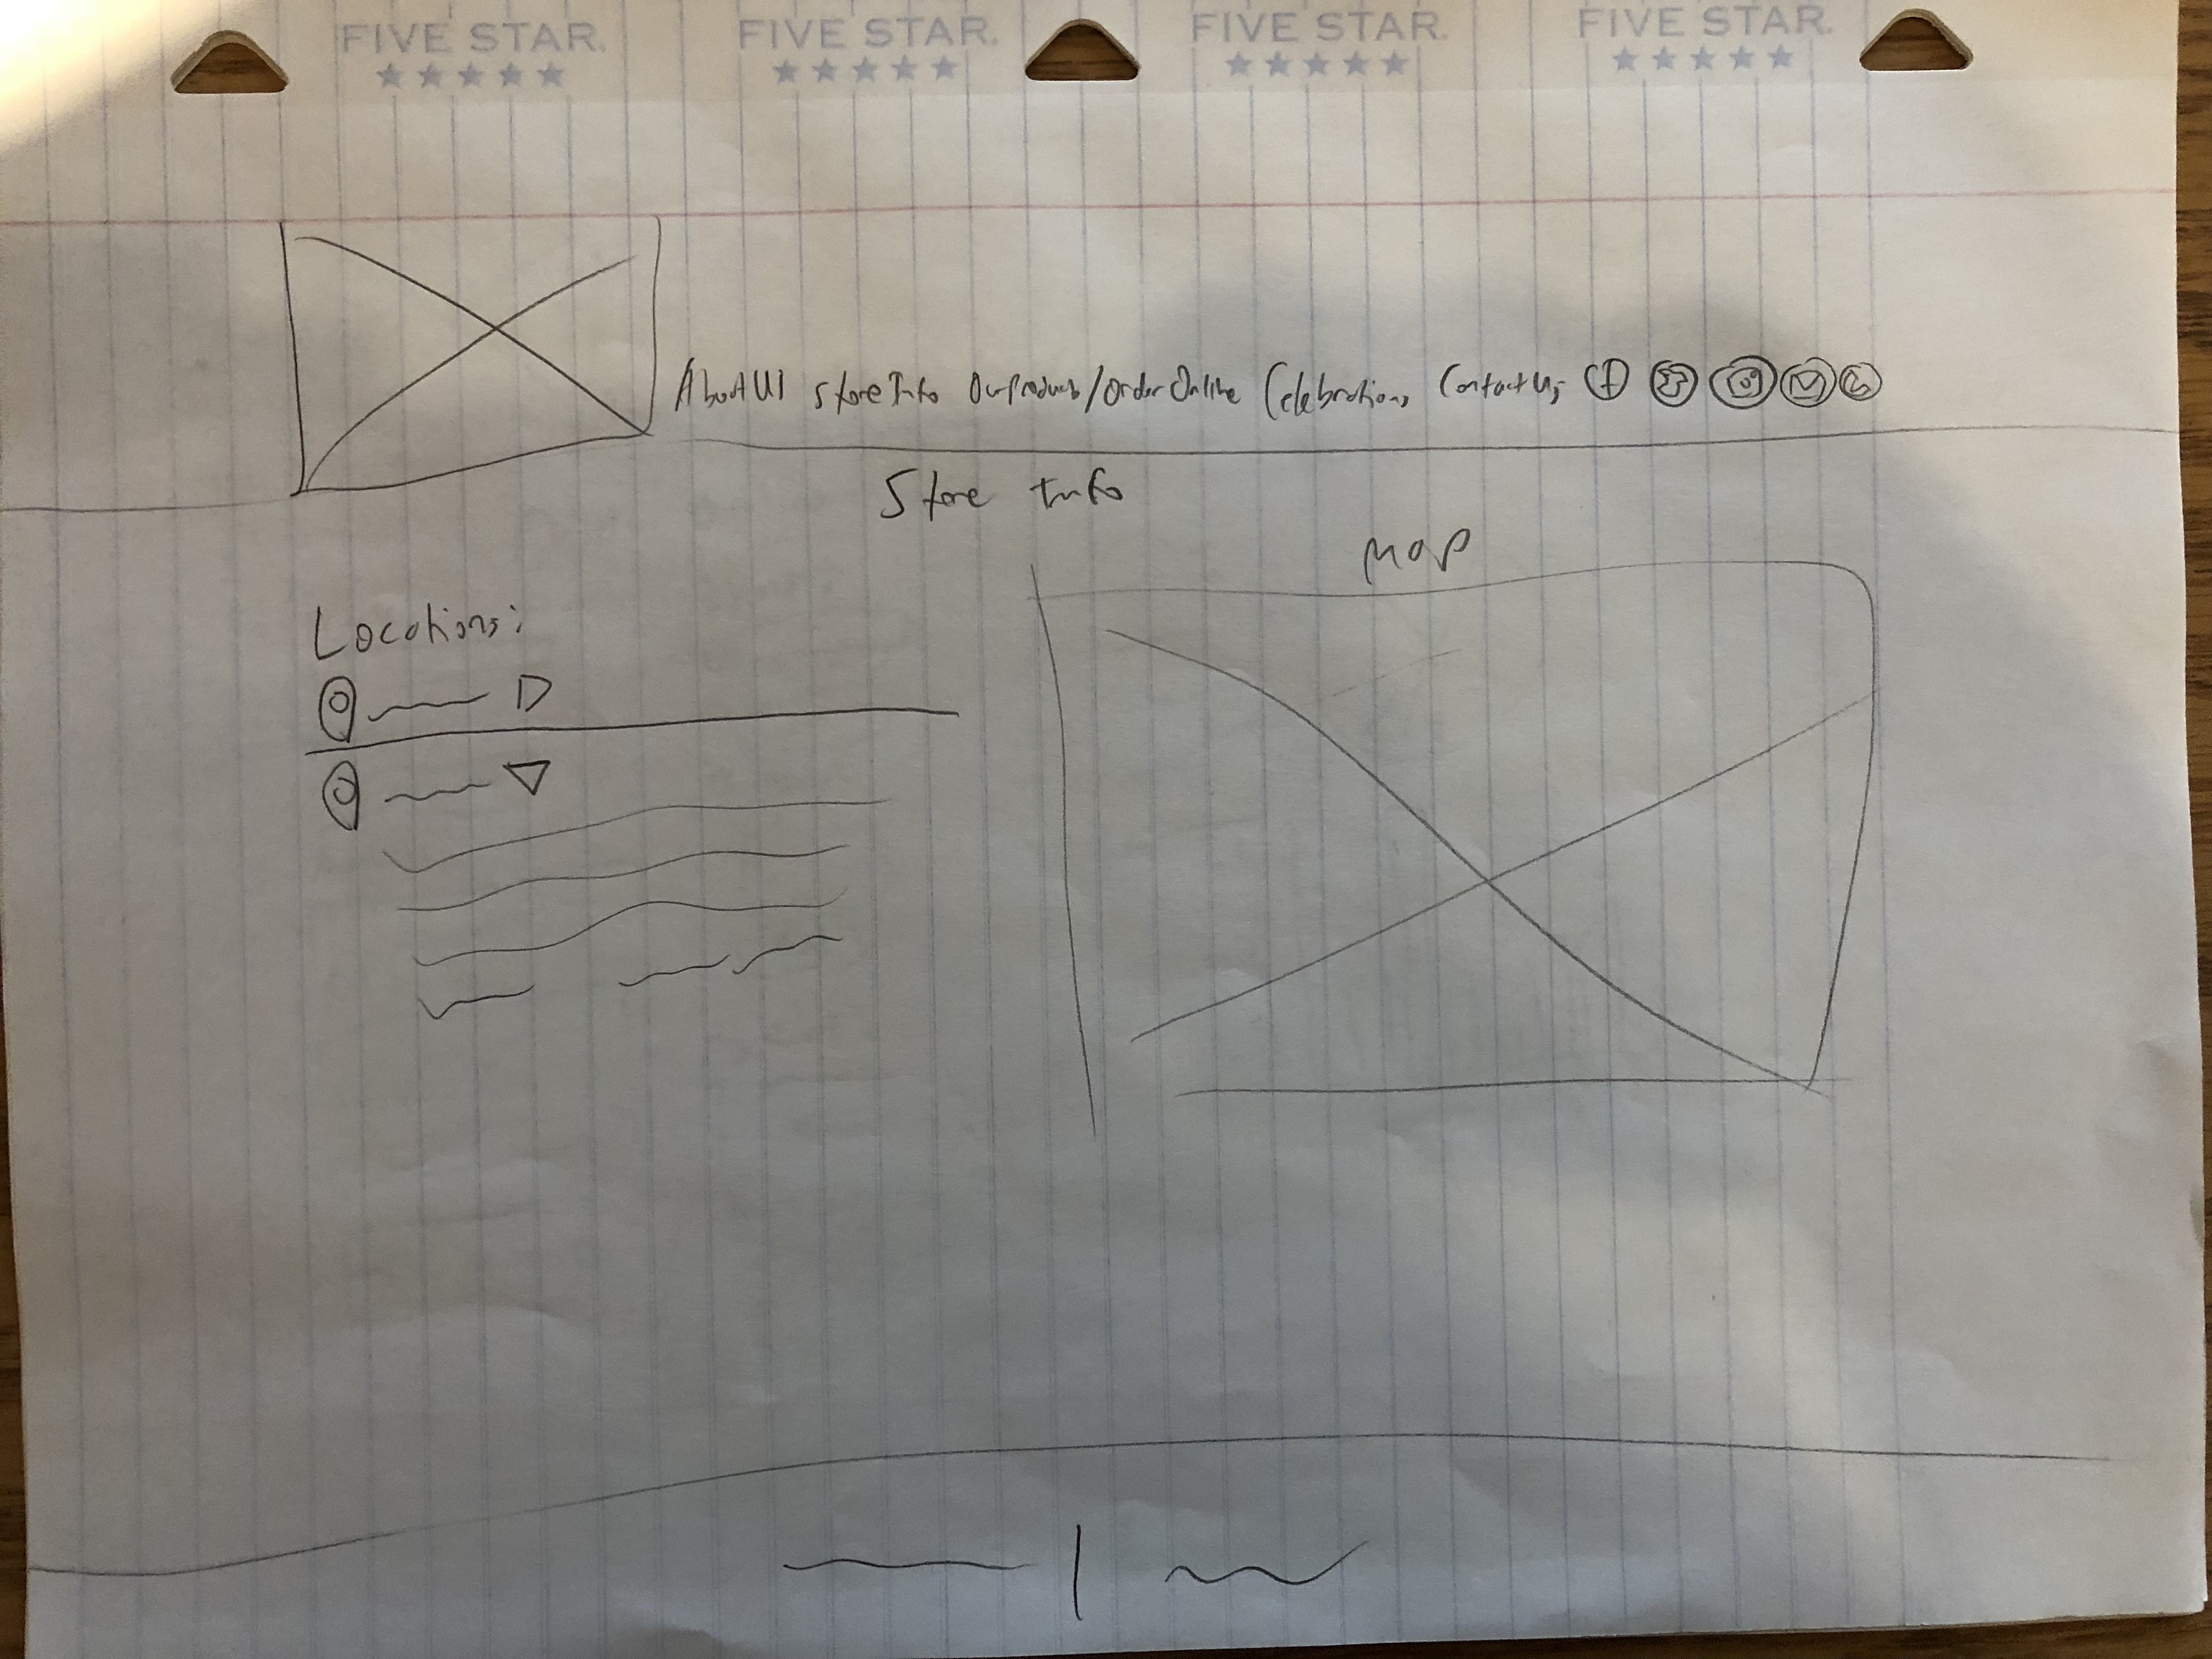 FIVE STAR. FIVE STAR. FIVE STAR. FIVE STAR.
★★★★★ ★★★★★ ★★★★★ ★★★★★
About Us Store Info Our Products/Order Online Celebrations Contact Us
Store Info
Map
Locations: